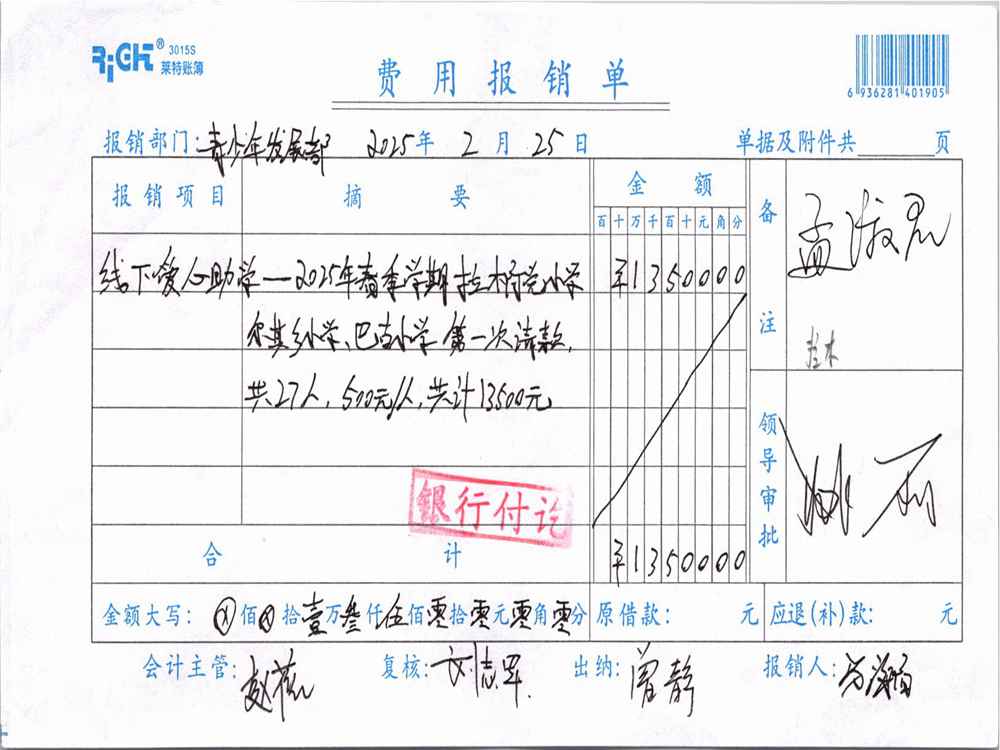 RiCHT® 3015S
莱特账簿
费用报销单
6 936281 401905
报销部门:青少年发展部 2025年 2 月 25 日 单据及附件共 页
报销项目 摘要 金额 备注
百十万千百十元角分
孟淑君
线下爱心助学—2025年春季学期拉木尔堡小学 ¥1350000
尔其乡小学、巴吉小学第一次请款,
拉木
共27人,500元/人,共计13500元
领导审批 姚丽
银行付讫
合计 ¥1350000
金额大写: ⊗佰⊗拾壹万叁仟伍佰零拾零元零角零分 原借款: 元 应退(补)款: 元
会计主管: 赵薇 复核: 刘志军 出纳: 曾静 报销人: